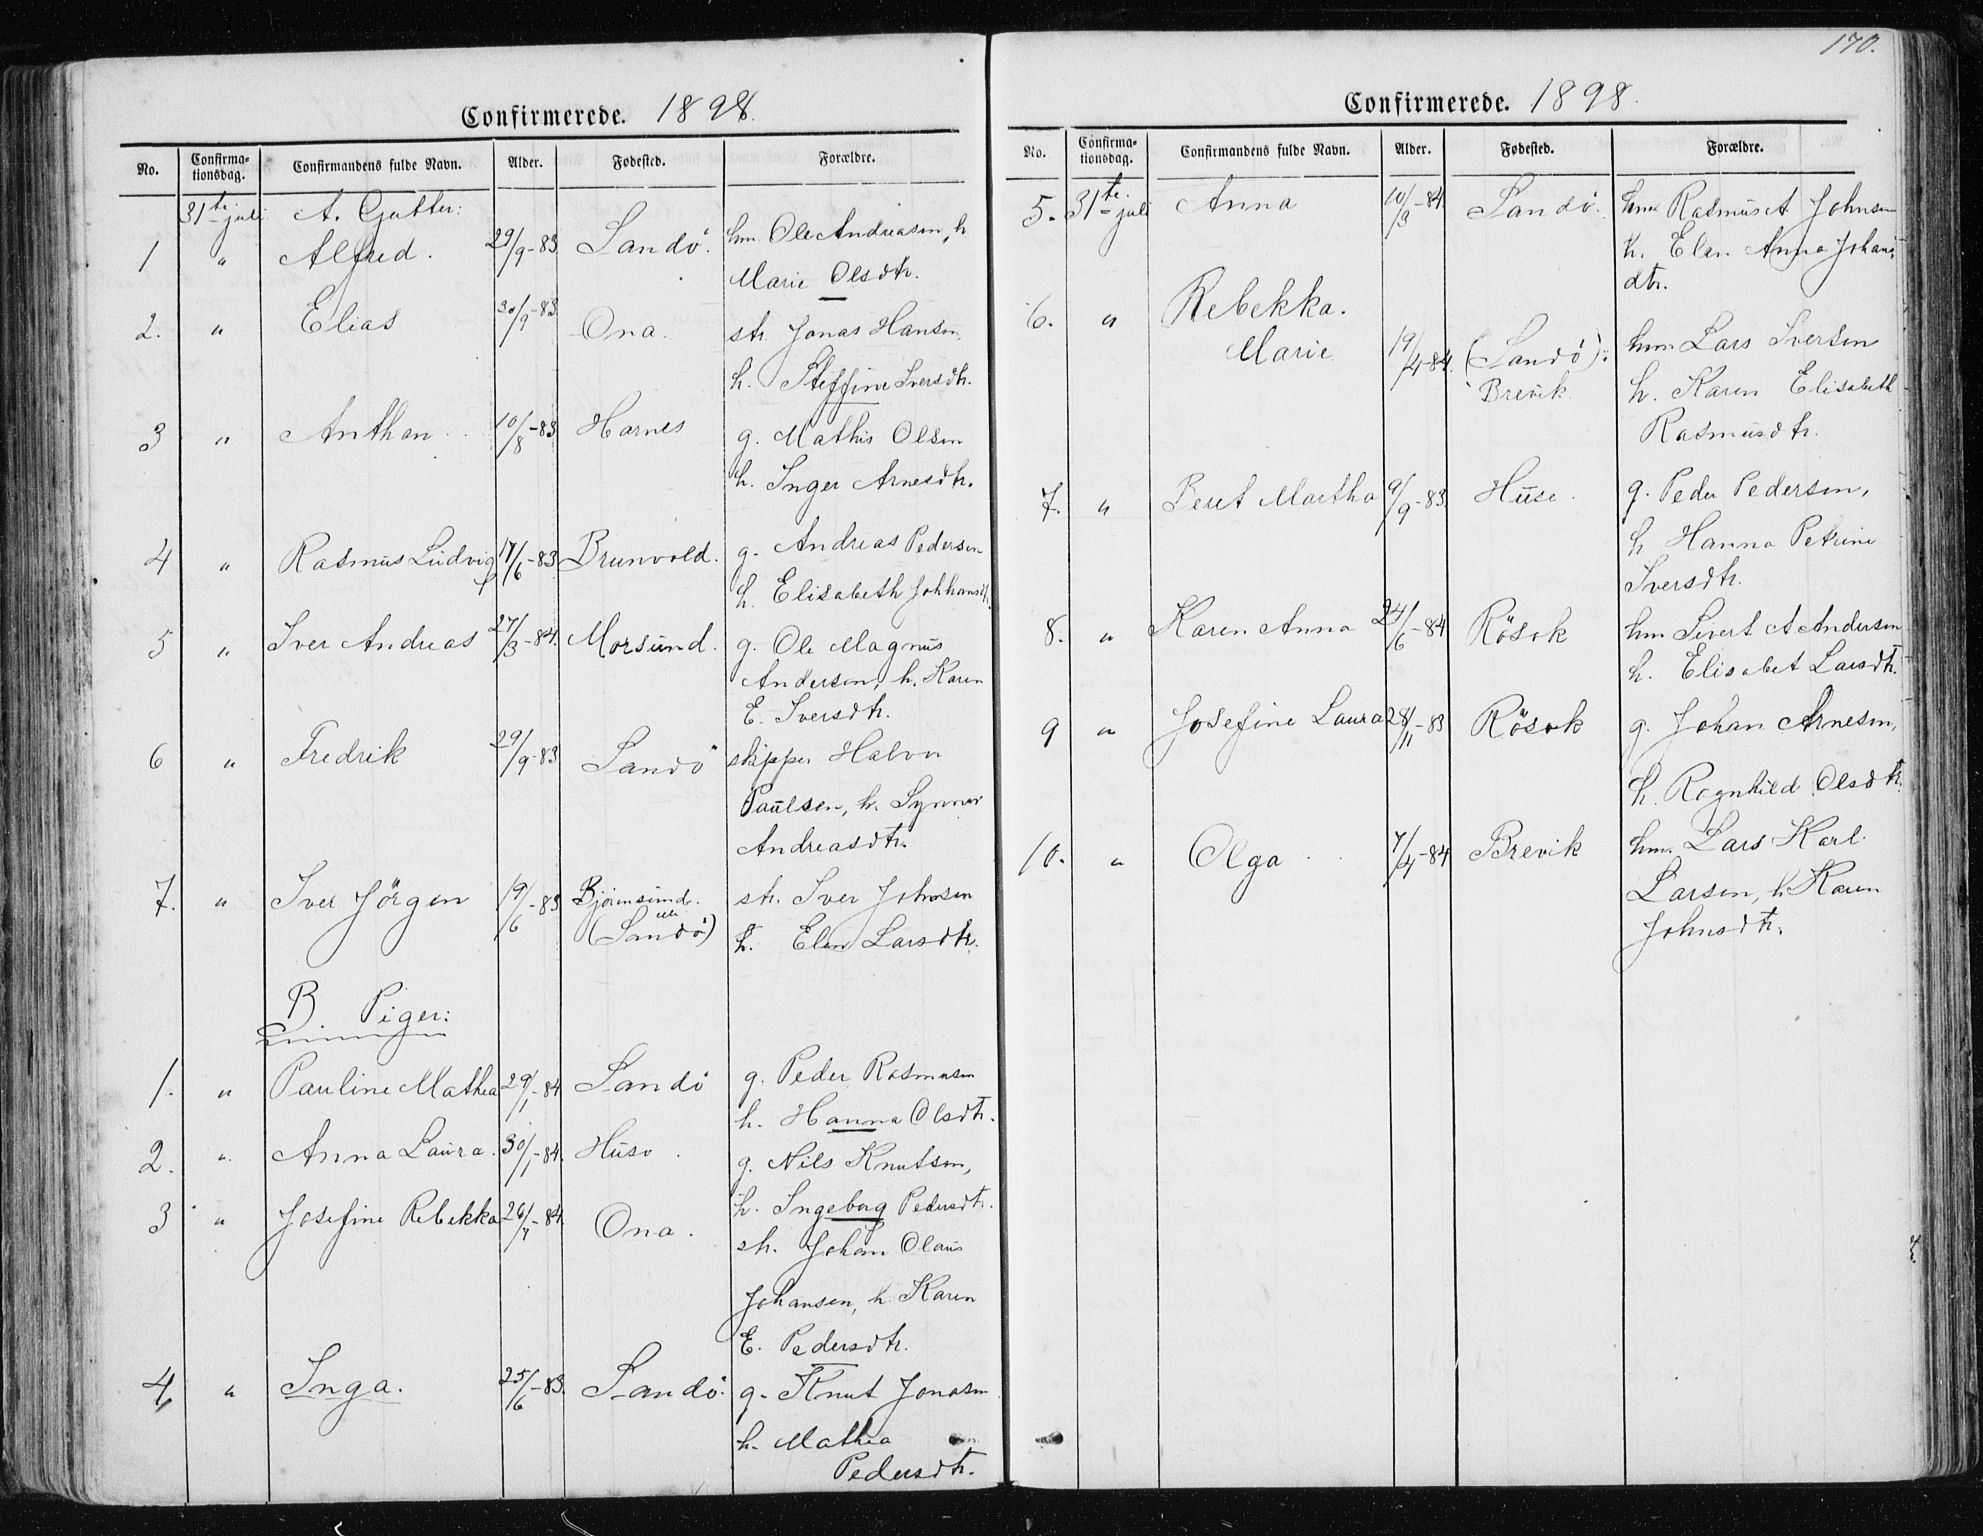 Confirmerede. 1898.
No. Confirma-tionsdag. Confirmandens fulde Navn. Alder. Fødested. Forældre.
31te juli A. Gutter:
1 " Alfred. 29/9-83 Sandö. hm. Ole Andreasen, h
Marie Olsdtr.
2. " Elias 30/9-83 Ona. str. Jonas Hansen,
h. Steffine Iversdtr.
3 " Anthon 10/8-83 Harnes g. Mathis Olsen
h. Inger Arnesdtr.
4 " Rasmus Ludvig 17/6-83 Brunvold. g. Andreas Pedersen
h. Elisabeth Johhansdt.
5 " Iver Andreas 27/3-84. Morsund. g. Ole Magnus
Andersen, h. Karen
E. Iversdtr.
6 " Fredrik 29/9-83 Sandö skipper Halvor
Paulsen, h. Synnev
Andreasdtr.
7. " Iver Jörgen 19/6-83 Björnsund. str. Iver Johnsen
(Sandö) h. Elen Larsdtr.
B Piger:
1. " Pauline Mathea 29/1-84 Sandö g. Peder Rasmusen
h. Hanna Olsdtr.
2. " Anna Laura. 30/1-84. Huse. g. Nils Knutsen,
h. Ingeborg Pedersdtr.
3 " Josefine Rebekka 26/7-84. Ona. str. Johan Olaus
Johansen, h. Karen
E. Pedersdtr.
4 " Inga. 25/6-83. Sandö. g. Knut Jonasen
h. Mathea
Pedersdtr.
170.
Confirmerede. 1898.
No. Confirma-tionsdag. Confirmandens fulde Navn. Alder. Fødested. Forældre.
5. 31te juli Anna 10/3-84. Sandö. hm Rasmus A Johnsen
h. Elen Anna Johans
dtr.
6. " Rebekka.
Marie. 19/4-84. (Sandö): hm Lars Iversen
Brevik. h. Karen Elisabeth
Rasmusdtr.
7. " Beret Martha 9/9-83. Huse. g. Peder Pedersen,
h Hanna Petrine
Iversdtr.
8. " Karen Anna 24/6-84 Rösok hm Sivert A Andersen
h. Elisabet Larsdtr.
9 " Josefine Laura 28/11-83 Rösok g. Johan Arnesen,
h. Ragnhild Olsdtr.
10. " Olga 7/4-84 Brevik hm. Lars Karl
Larsen, h Karen
Johnsdtr.